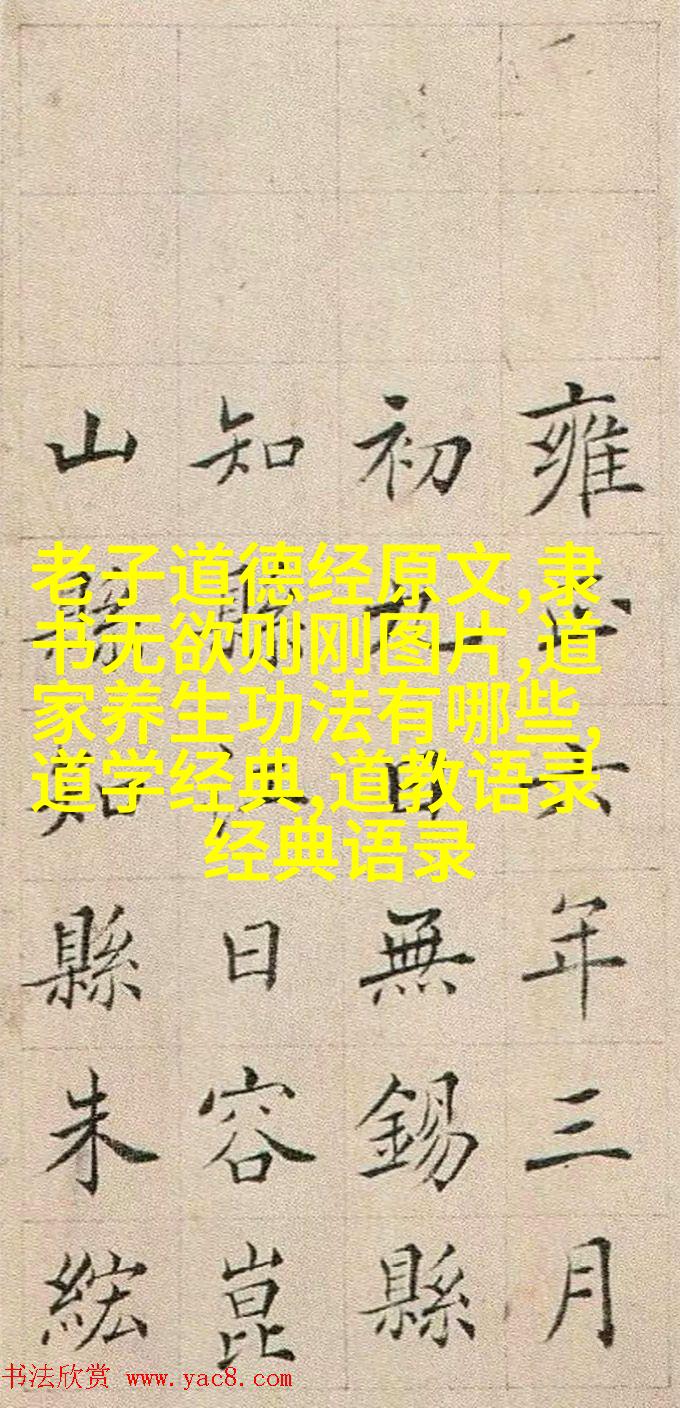 雍正六年三月
初九日無錫縣
知縣江日容崑
山縣知縣朱紘
老子道德经原文,隶
书无欲则刚图片,道
家养生功法有哪些,
道学经典,道教语录
经典语录
书法欣赏 www.yac8.com